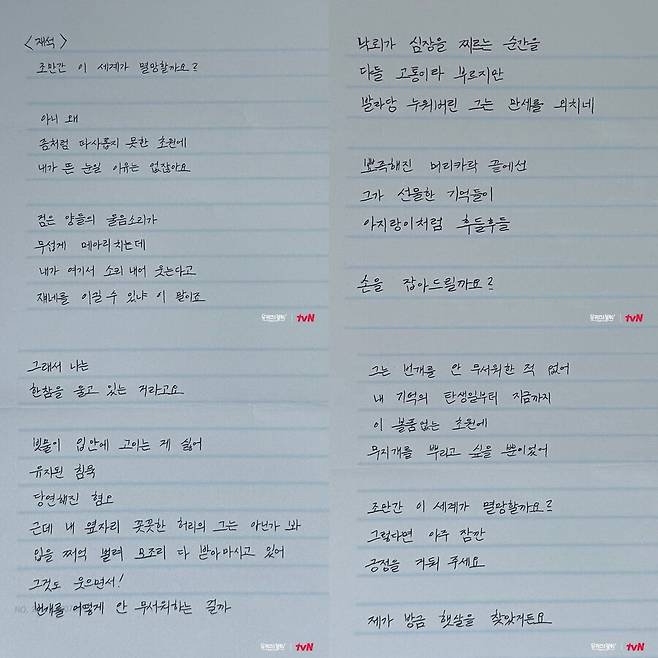 <재석>
조만간 이 세계가 멸망할까요?
아니 왜
좀처럼 따사롭지 못한 초원에
내가 뜬 눈일 이유는 없잖아요
검은 양들의 울음소리가
무섭게 메아리치는데
내가 여기서 소리 내어 웃는다고
쟤네를 이길 수 있냐 이 말이죠
유퀴즈온더블럭 tvN
낙뢰가 심장을 찌르는 순간을
다들 고통이라 부르지만
발라당 누워버린 그는 만세를 외치네
뾰족해진 머리카락 끝에선
그가 선물한 기억들이
아지랑이처럼 후들후들
손을 잡아드릴까요?
tvN
그래서 나는
한참을 울고 있는 거라고요
빗물이 입안에 고이는 게 싫어
유지된 침묵
당연해진 혐오
근데 내 옆자리 꼿꼿한 허리의 그는 아닌가 봐
입을 쩌억 벌려 요조리 다 받아마시고 있어
그것도 웃으면서!
번개를 어떻게 안 무서워하는 걸까
NO.
tvN
그는 번개를 안 무서워한 적 없어
내 기억의 탄생일부터 지금까지
이 볼품없는 초원에
무지개를 뿌리고 싶을 뿐이었어
조만간 이 세계가 멸망할까요?
그렇다면 아주 잠깐
긍정을 거둬 주세요
제가 방금 햇살을 찾았거든요
tvN